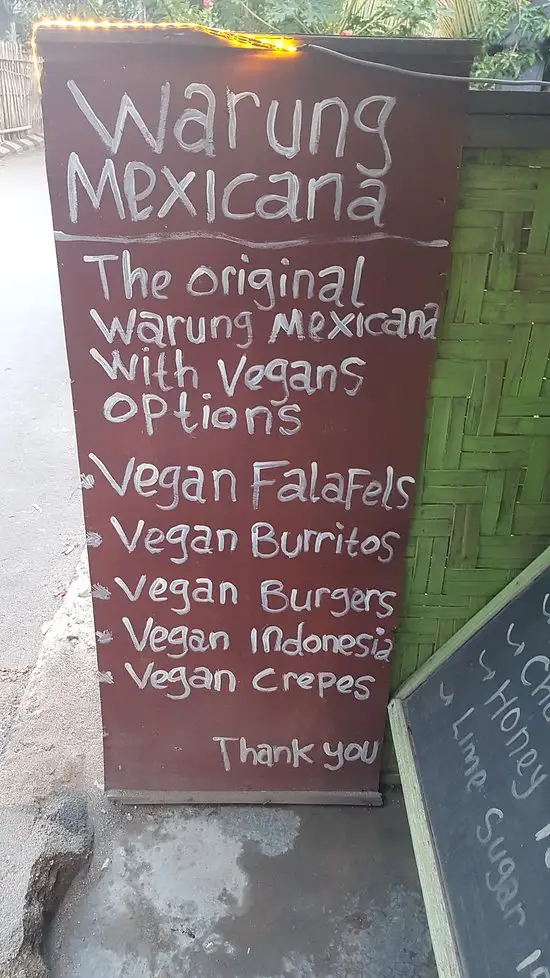 Warung
Mexicana
The original
Warung Mexicana
With Vegans
options
Vegan Falafels
Vegan Burritos
Vegan Burgers
Vegan Indonesia
Vegan crepes
Thank you
Honey
Lime Sugar